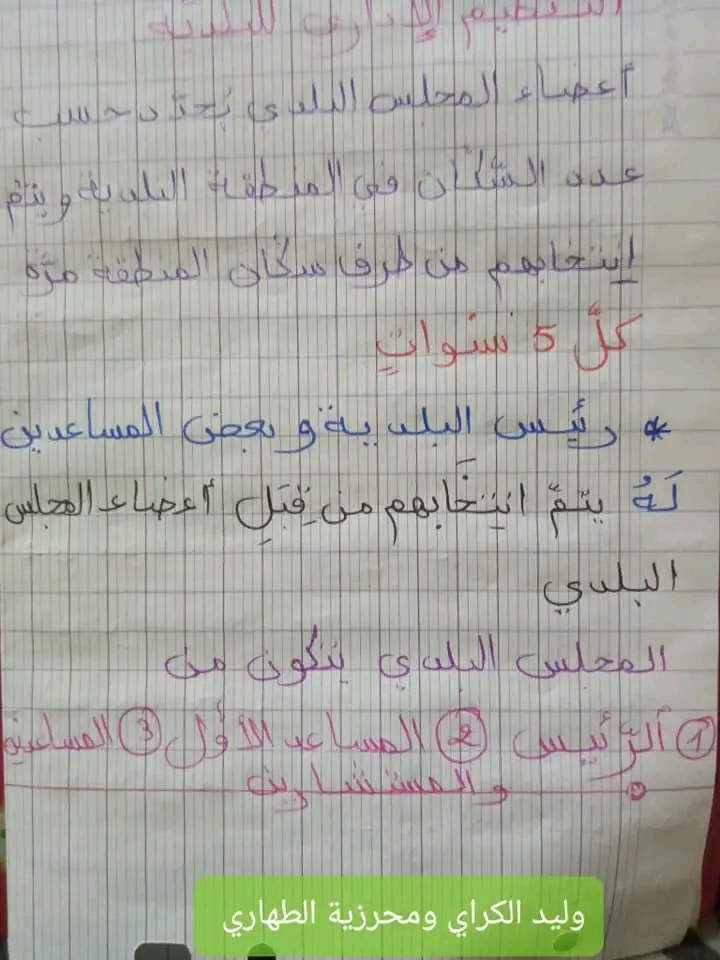 التنظيم الإداري للبلدية
أعضاء المجلس البلدي يُحدّد حسب
عدد السّكّان في المنطقة البلدية و يتمّ
إنتخابهم من طرف سكّان المنطقة مرّة
كلّ 5 سنواتٍ
* رئيس البلدية و بعض المساعدين
لَهُ يتمّ انتِخَابهم من قِبَلِ أعضاء المجلس
البلدي
المجلس البلدي يتكون من
① الرّئيس ② المساعد الأوّل ③ المساعدين
والمستشارين
وليد الكراي ومحرزية الطهاري